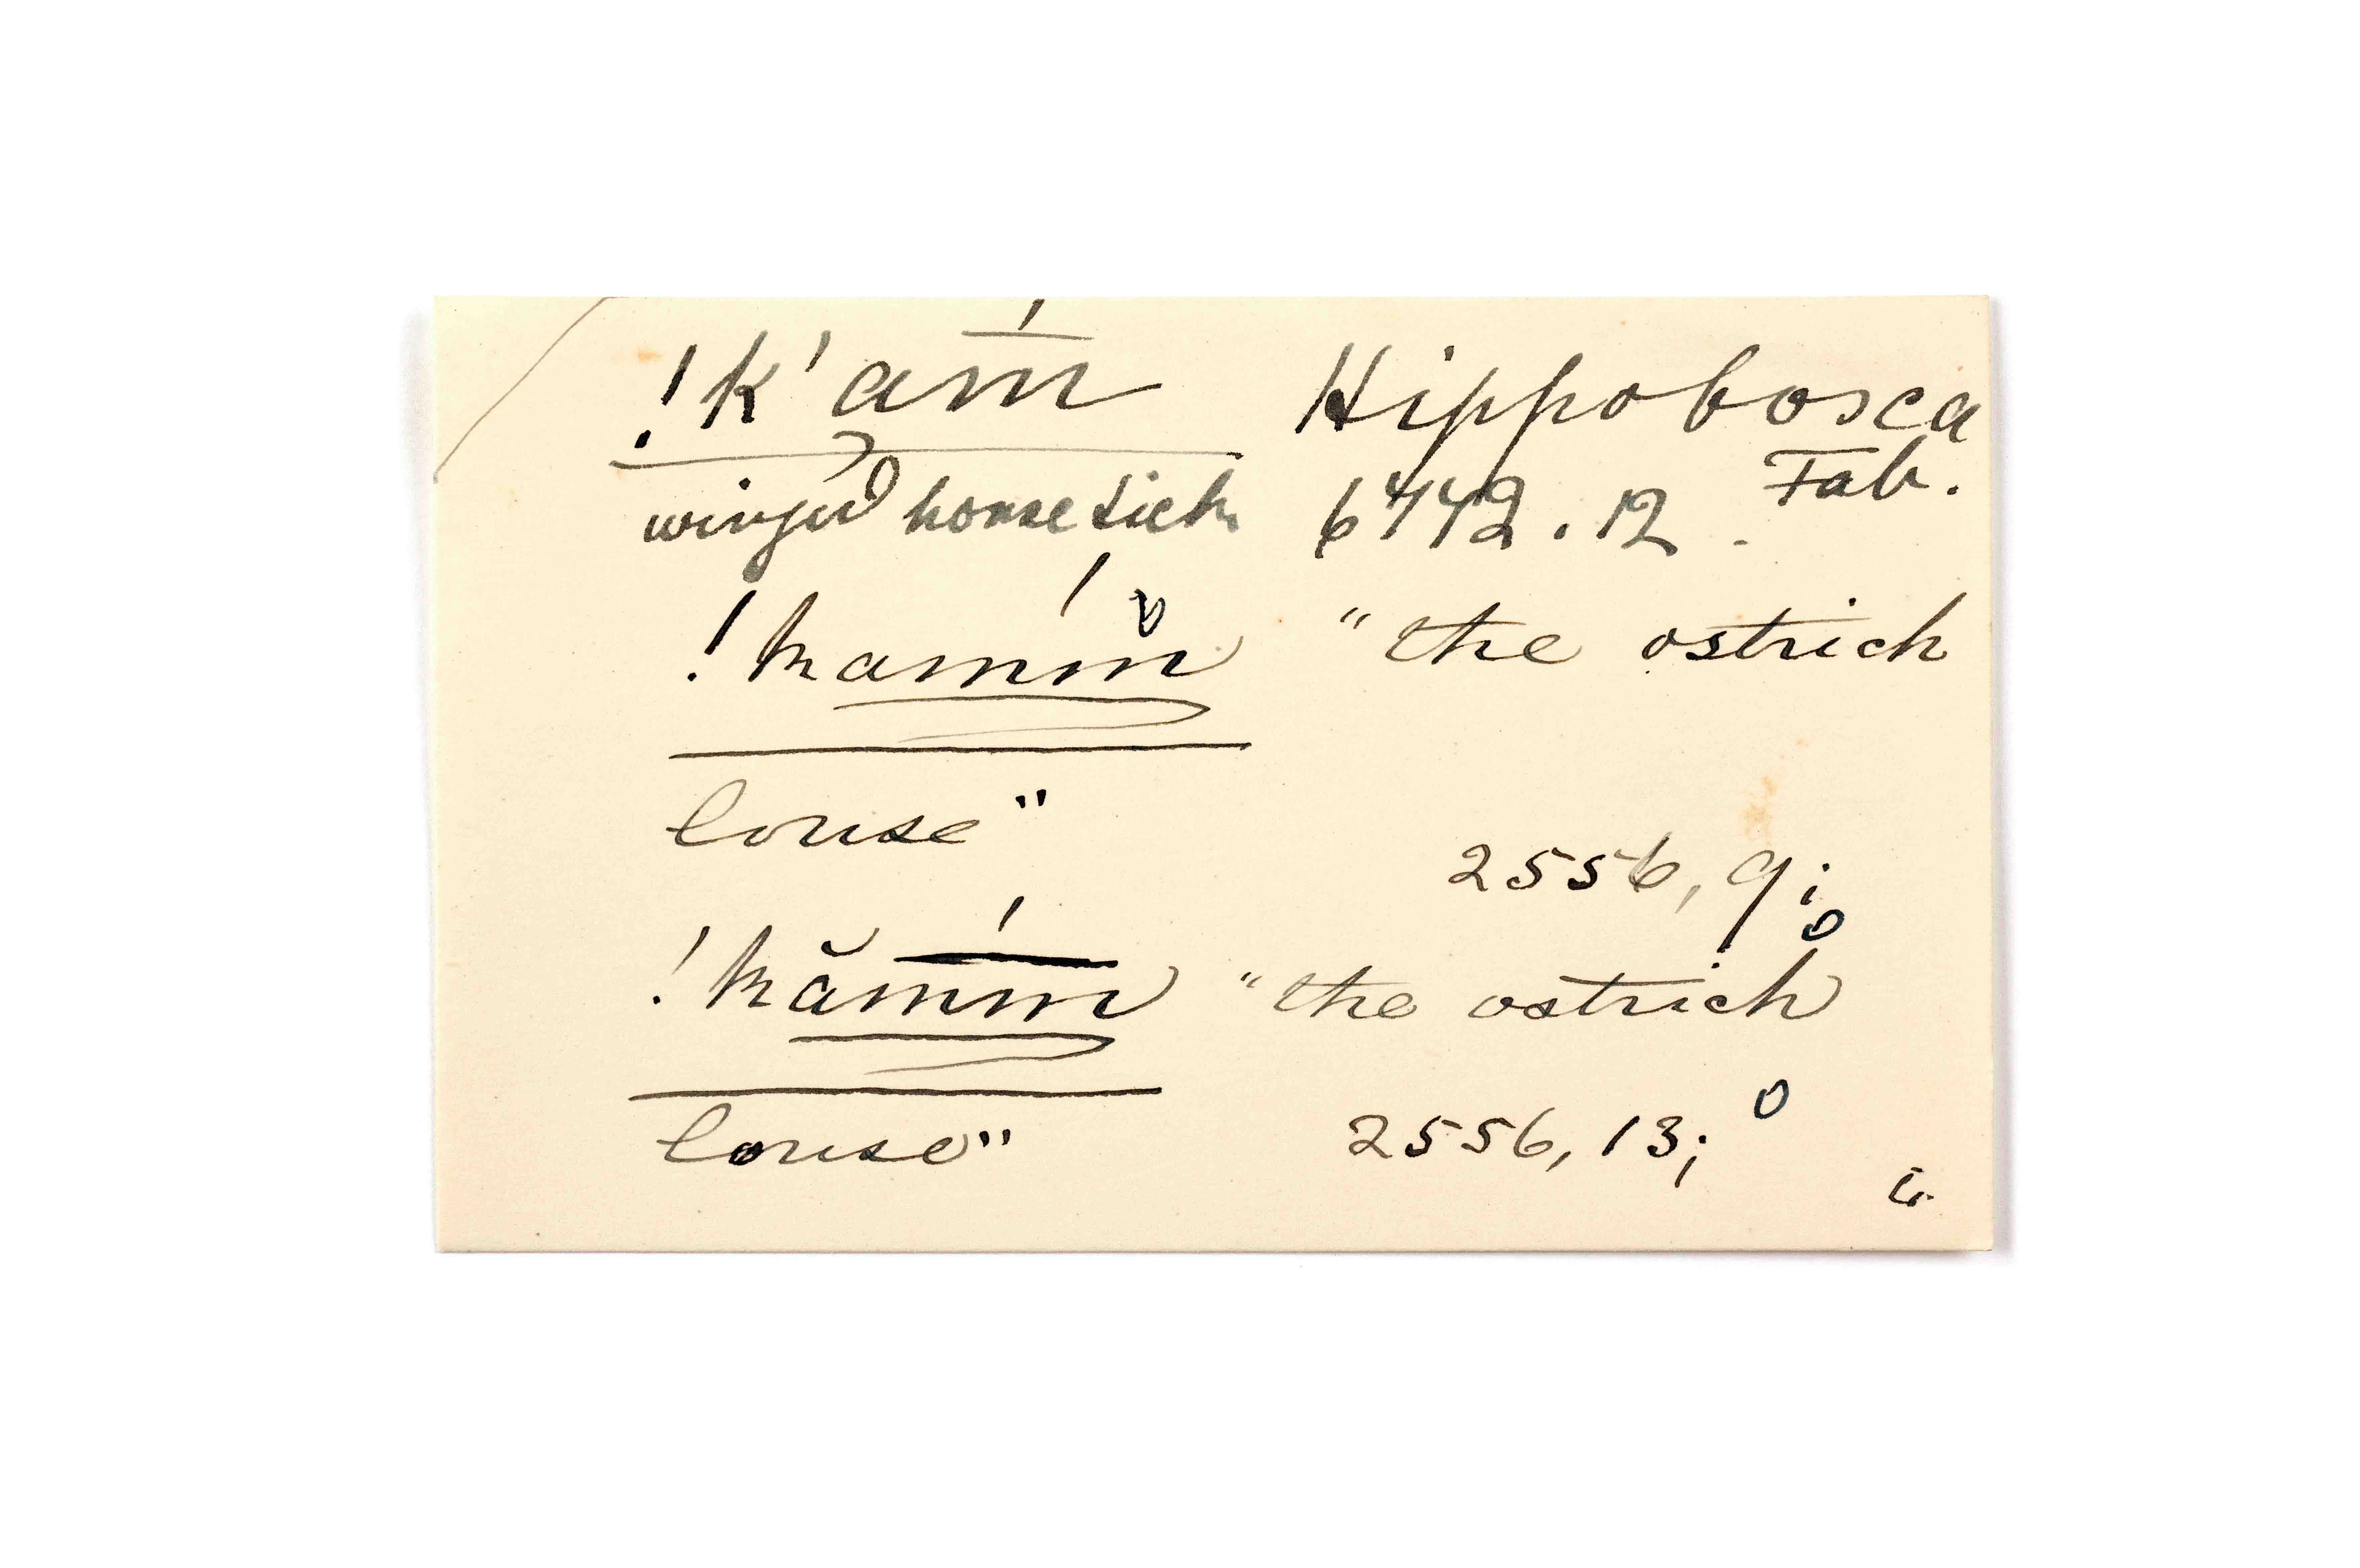 !k'am̄́ Hippobosca
Fab.
winged horse tick 6742.12.
!kamm̆́ "the ostrich
louse"
2556, 9;
!kămm̄́ "the ostrich
louse"
2556, 13;